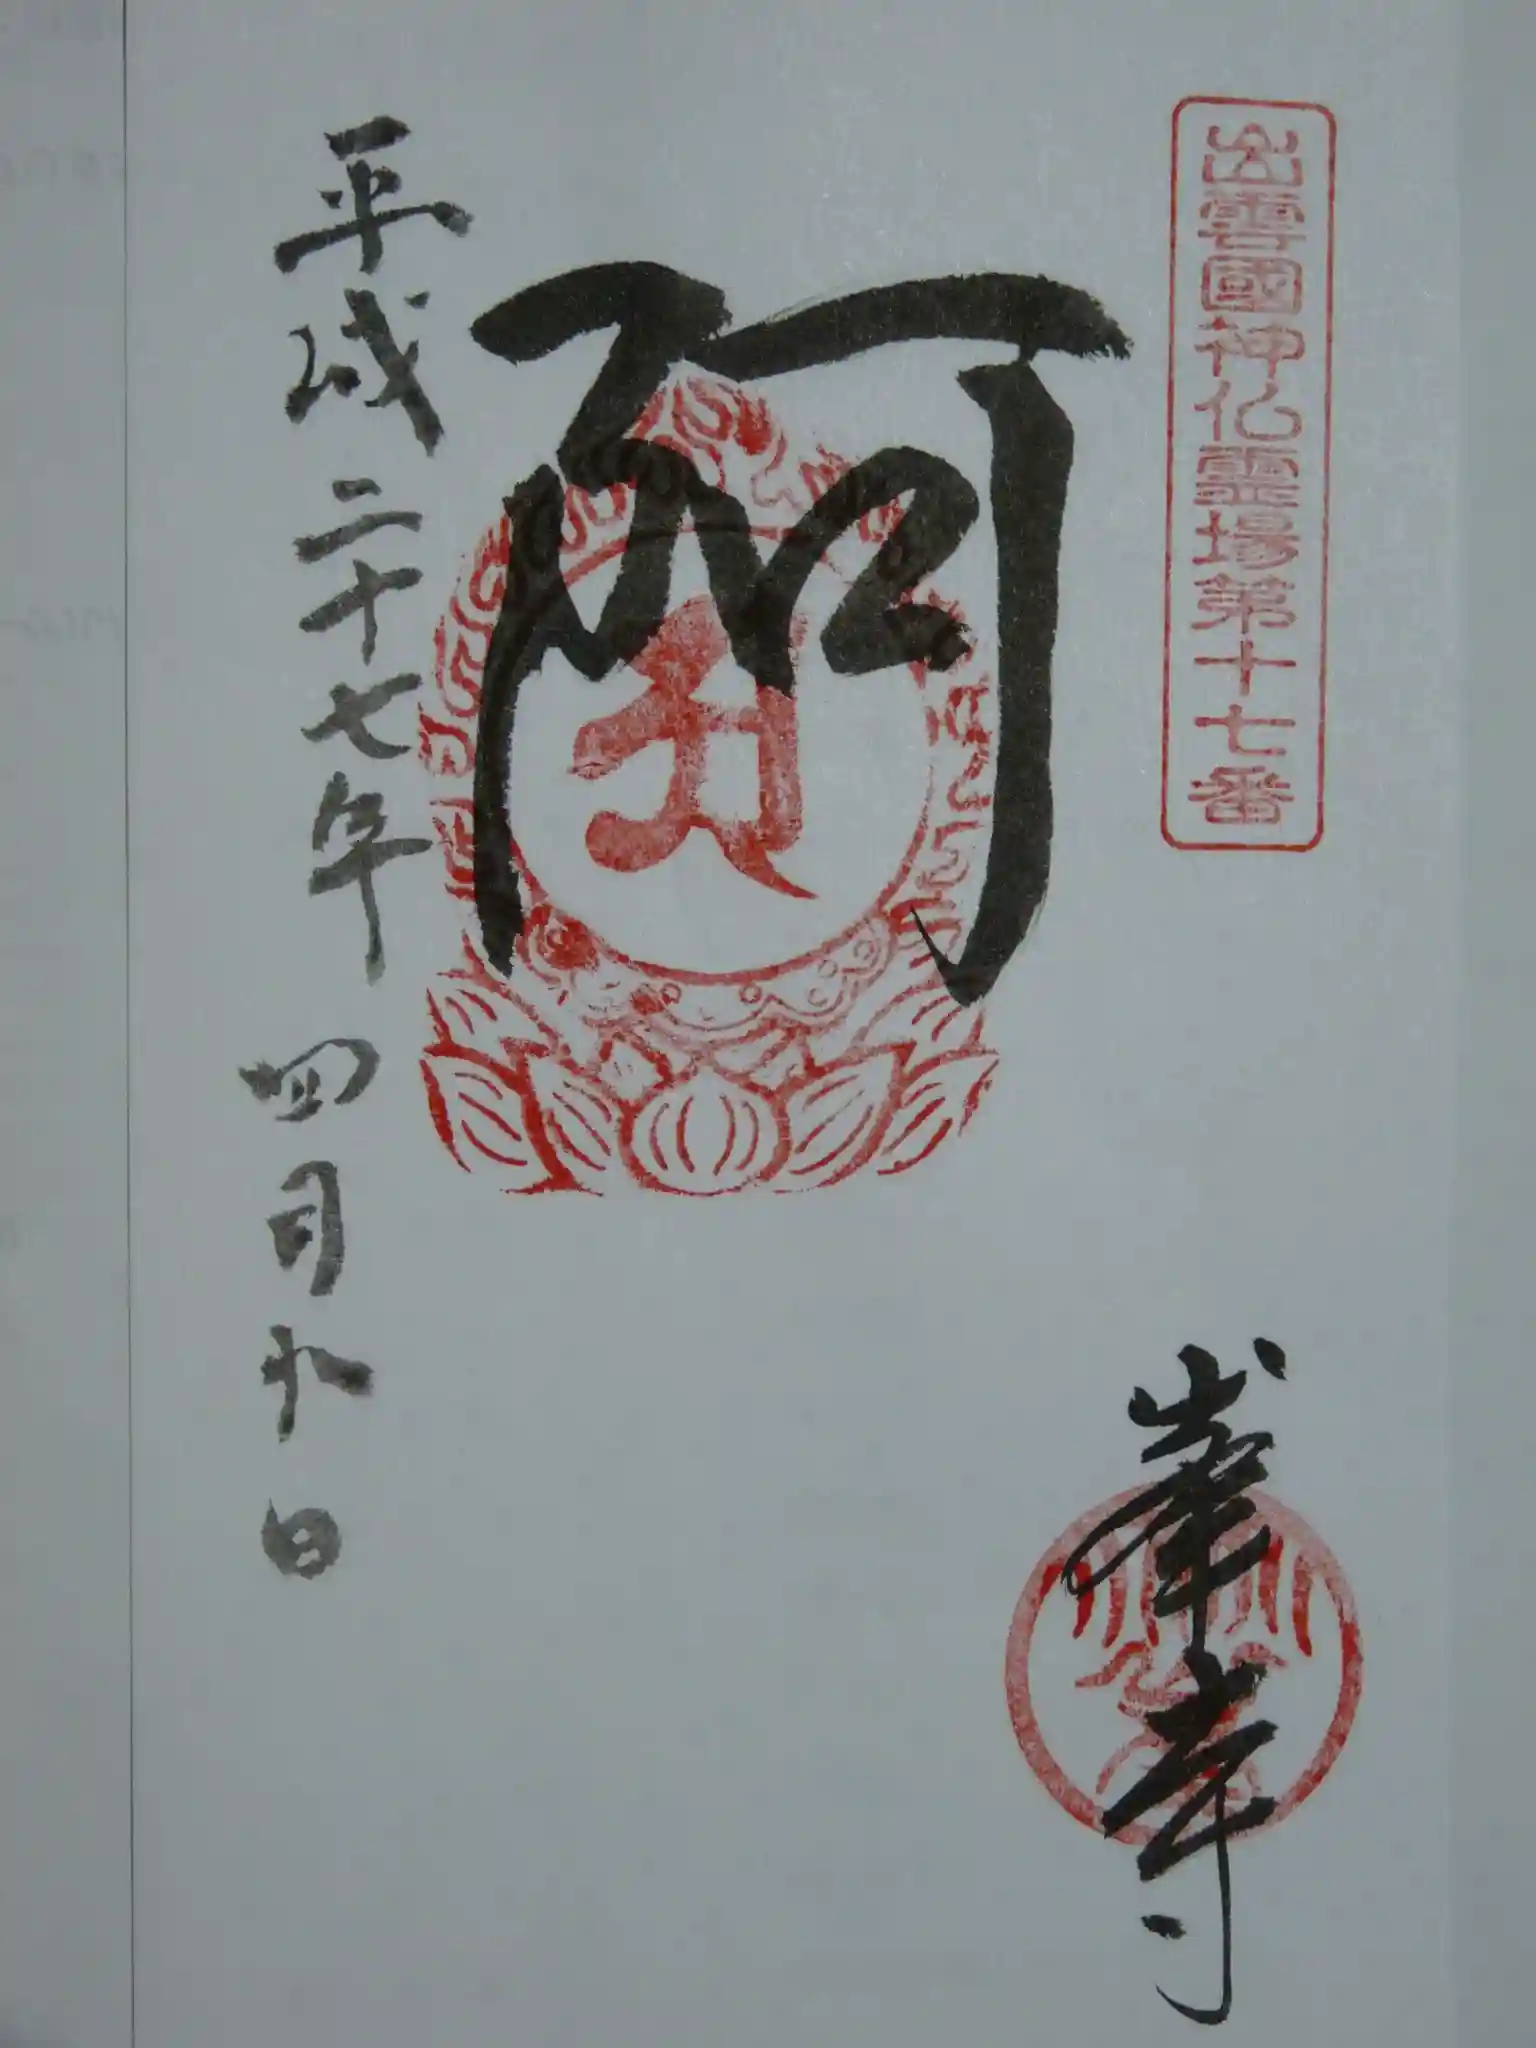 出雲國神仏霊場第十七番
平成二十七年四月 日
峯寺